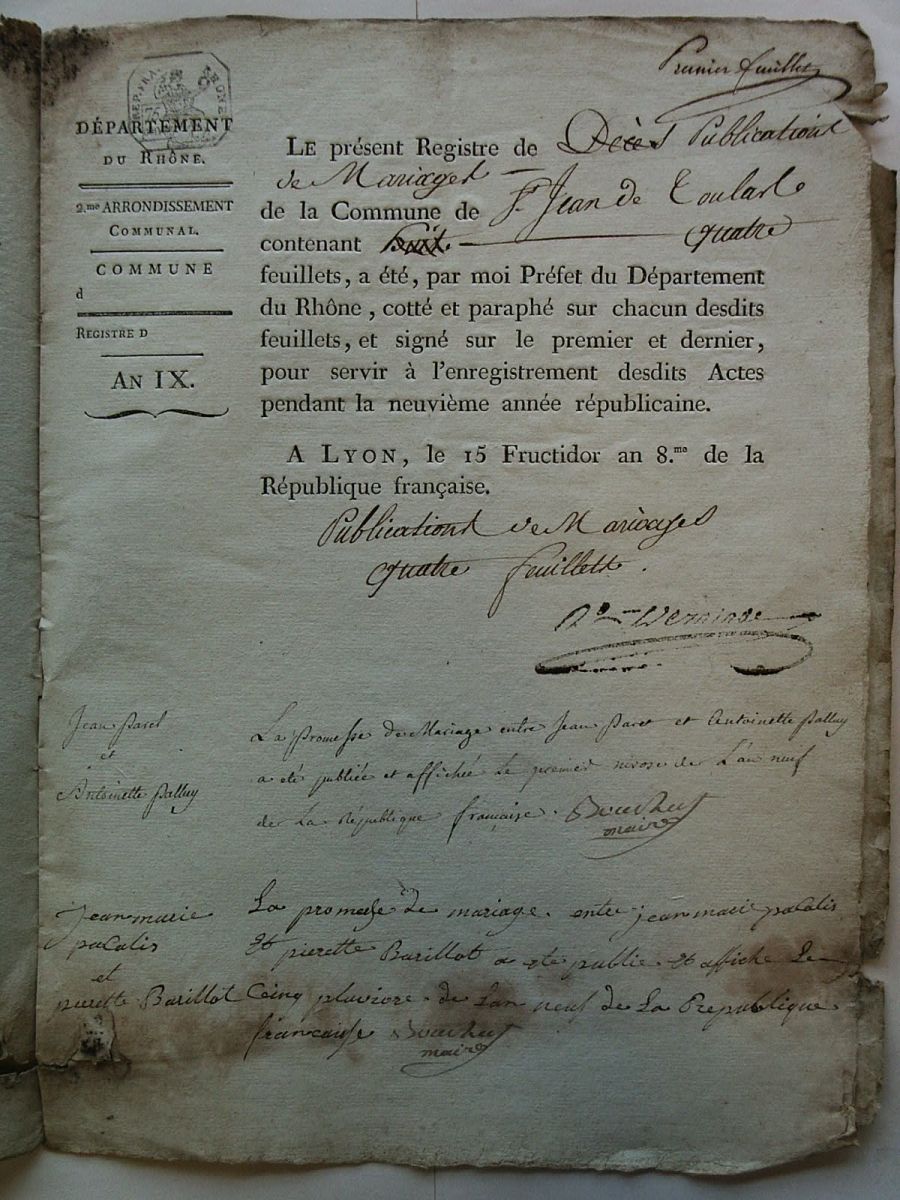 Premier feuillet
REP. FRA.
RHONE
DÉPARTEMENT
DU RHÔNE.
2.me ARRONDISSEMENT
COMMUNAL.
COMMUNE
d
REGISTRE D
AN IX.
LE présent Registre de Décès Publications
de Mariages
de la Commune de St Jean de Toulas
contenant huit. quatre
feuillets, a été, par moi Préfet du Département
du Rhône, cotté et paraphé sur chacun desdits
feuillets, et signé sur le premier et dernier,
pour servir à l'enregistrement desdits Actes
pendant la neuvième année républicaine.
A LYON, le 15 Fructidor an 8.me de la
République française.
Publications de Mariages
quatre feuillets.
Verninac
Jean Paret
et
Antoinette Palluy
La Promesse de Mariage entre Jean Paret et Antoinette Palluy
a été publiée et affichée Le premier nivose de L'an neuf
de La République française.
maire
jean marie
pacalis
et
pierette Barillot
La promesse de mariage. entre jean marie pacalis
Et pierette Barillot a eté publie Et affiche Le
Cinq pluviose de L'an neuf de La Republique
francaisse
maire